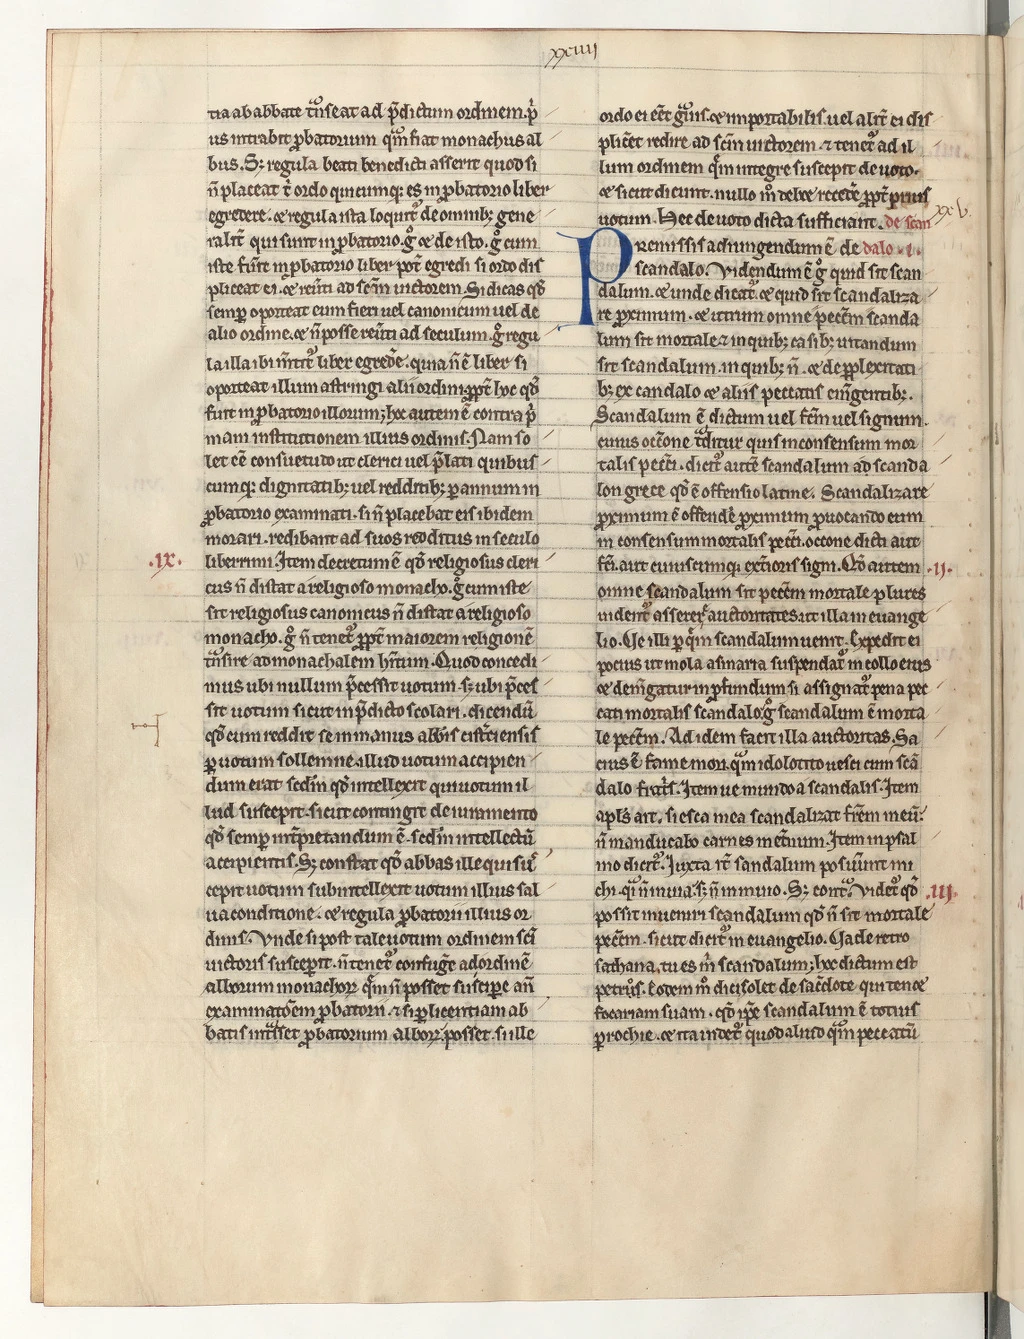 xxiiii
tia ab abbate t͛nseat ad p̄dictum ordinem. p̄
us intrabit ꝓbatorium q̄m fiat monachus al
bus. Sꝫ regula beati benedicti asserit quod si
n̄ placeat t̄ ordo quicumqꝫ es in ꝓbatorio liber
egredere. et regula ista loquit᷑ de omnibꝫ gene
ralit̄ qui sunt in ꝓbatorio. g̊ et de isto. g̊ cum
iste fuīt in ꝓbatorio liber pōt egredi si ordo dis
pliceat ei. et reūti ad sc̄m uictorem. Si dicas qd̄
semꝑ oporteat eum fieri uel canonicum uel de
alio ordine. et n̄ posse reūti ad seculum. g̊ regu
la illa ibi
liber egrede. quia n̄ ē liber si
oporteat illum astringi alii ordini ꝓpt̄ hoc qd̄
fuit in ꝓbatorio illorum; hoc autem ē contra p̄
mam institutionem illius ordinis. Nam so
let eē consuetudo ut clerici uel p̄lati quibus
cumqꝫ dignitatibꝫ uel redditibꝫ ꝑ annum in
ꝓbatorio examinati. si n̄ placebat eis ibidem
morari. redibant ad suos redditus in seculo
.ix.
liberrimi. Item decretum ē qd̄ religiosus cleri
cus n̄ distat a religioso monacho. g̊ cum iste
sit religiosus canonicus n̄ distat a religioso
monacho. g̊ n̄ tenet᷑ ꝓpt̄ maiorem religionē
t͛nsire ad monachalem hītum. Quod concedi
mus ubi nullum p̄cessit uotum. sꝫ ubi p̄ces
sit uotum sicut in p̄dicto scolari. dicendū
qd̄ cum reddit se in manus abb̄is cist̄ciensis
ꝑ uotum sollemne. illud uotum accipien
dum erat sc̄dm qd̄ intellexit qui uotum il
lud suscepit. sicut contingit de iuramento
qd̄ semꝑ int̄pretandum ē. sc̄dm intellectū
accipientis. Sꝫ constat qd̄ abbas ille qui su
cepit uotum subintellexit uotum illius sal
ua conditione. et regula ꝓbatorii illius or
dinis. Vnde si post tale uotum ordinem sc̄i
uictoris suscepit. n̄ tenet᷑ confuge ad ordinē
alborum monachoꝝ q̄m n̄ posset suscipe an̄
examinatōem ꝓbatorii. ⁊ si ꝑ licentiam ab
batis int͛sset ꝓbatorium alboꝝ. posset. si ille
ordo ei eēt g͛uis. et importabilis. uel alit̄ ei dis
plicēt redire ad sc̄m uictorem. ⁊ tenet᷑ ad il
lum ordinem q̄m integre suscepit de uoto.
et sicut dicunt. nullo m̊ debet recedē ꝓpt̄ prius
uotum. Hec de uoto dicta sufficiant. de scan
xxv.
Premissis adiungendum ē de dalo .i.
scandalo. Videndum ē g̊ quid sit scan
dalum. et unde dicat᷑. et quid sit scandaliza
re ꝓximum. et utrum omne pecc̄m scanda
lum sit mortale. ⁊ in quibꝫ casibꝫ uitandum
sit scandalum. in quibꝫ n̄. et de ꝑplexitati
bꝫ ex candalo et aliis peccatis em̄gentibꝫ.
Scandalum ē dictum uel fc̄m uel signum.
cuius occōne t͛ditur quis in consensum mor
talis pecc̄i. dicit᷑ autē scandalum ad scanda
lon grece qd̄ ē offensio latine. Scandalizare
ꝓximum ē offendē ꝓximum ꝓuocando eum
in consensum mortalis pecc̄i. occōne dicti aut
fc̄i. aut cuiuscumqꝫ ext̄ioris signi. Qd̄ autem
.ii.
omne scandalum sit pecc̄m mortale plures
uident᷑ asserere auctoritates. ut illa in euange
lio. Ve illi ꝑ q̄m scandalum uenit. Expedit ei
pocius ut mola asinaria suspendat᷑ in collo eius
et dem̄gatur in ꝓfundum. si assignat᷑ pena pec
cati mortalis scandalo. g̊ scandalum ē morta
le pecc̄m. Ad idem facit illa auctoritas. Sa
cius ē fame mori. q̄m idolotito uesci cum scā
dalo frat͛s. Item ue mundo a scandalis. Item
apl̄s ait. si esca mea scandalizat frēm meū.
n̄ manducabo carnes in et̄num. Item in psal
mo dicit᷑. Iuxta it̄ sandalum posuūnt mi
chi. q̊ n̄ in uia. sꝫ n̄ in uiuo. Sꝫ cont͛. Videt᷑ qd̄
.iii.
possit inueniri scandalum qd̄ n̄ sit mortale
pecc̄m. sicut dicit᷑ in euangelio. Vade retro
sathana. tu es m̄ scandalum; hoc dictum est
petrus. Eodem m̊ dici solet de sac̄dote qui tenet
focariam suam. qd̄ ip̄e scandalum ē totius
ꝑrochie. et ita indet᷑ quod aliud q̄m peccatū